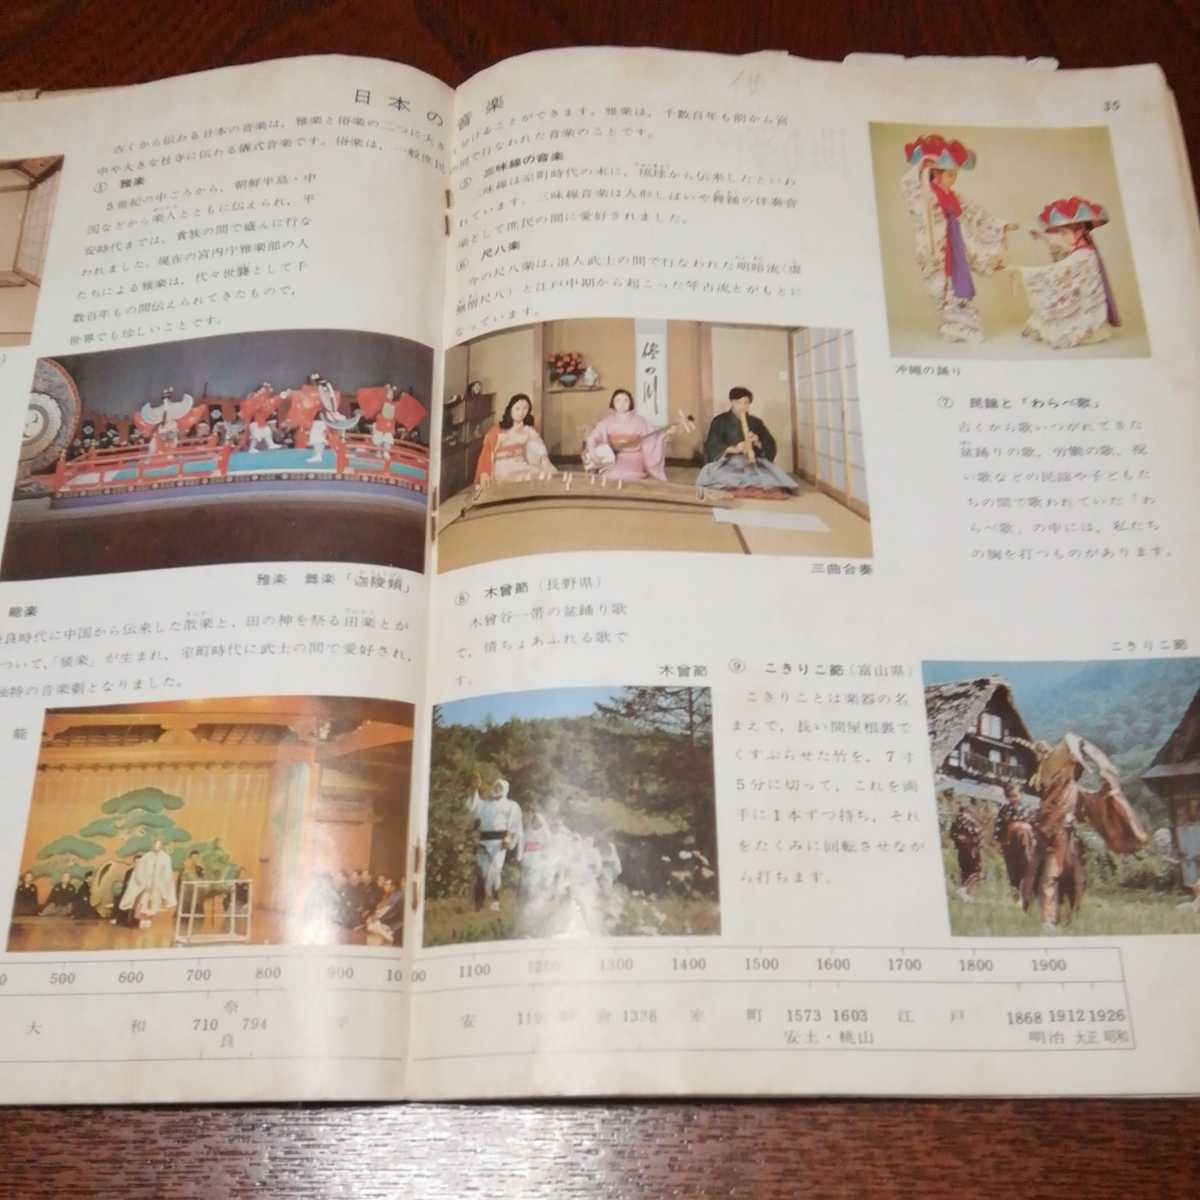 日本の音楽
35
古くから伝わる日本の音楽は，雅楽と俗楽の二つに大き
く分けることができます。雅楽は，千数百年も前から宮
中や大きな社寺に伝わる儀式音楽です。俗楽は，一般庶民
の間で行なわれた音楽のことです。
① 雅楽
5世紀の中ごろから，朝鮮半島・中
国などから楽人とともに伝えられ，平
安時代までは，貴族の間で盛んに行な
われました。現在の宮内庁雅楽部の人
たちによる雅楽は，代々世襲として千
数百年もの間伝えられてきたもので，
世界でも珍しいことです。
雅楽 舞楽「迦陵頻」
能楽
良時代に中国から伝来した散楽と，田の神を祭る田楽とが
ついて，「猿楽」が生まれ，室町時代に武士の間で愛好され，
独特の音楽劇となりました。
能
⑤ 三味線の音楽
三味線は室町時代の末に，琉球から伝来したといわ
れています。三味線音楽は人形しばいや舞踊の伴奏音
楽として庶民の間に愛好されました。
⑥ 尺八楽
今の尺八楽は，浪人武士の間で行なわれた明暗流（虚
無僧尺八）と江戸中期から起こった琴古流とがもとに
なっています。
三曲合奏
沖縄の踊り
⑦ 民謡と「わらべ歌」
古くから歌いつがれてきた
盆踊りの歌，労働の歌，祝
い歌などの民謡や子どもた
ちの間で歌われていた「わ
らべ歌」の中には，私たち
の胸を打つものがあります。
⑧ 木曾節（長野県）
木曾谷一帯の盆踊り歌
で，情ちょあふれる歌で
す。
木曾節
⑨ こきりこ節（富山県）
こきりことは楽器の名
まえで，長い間屋根裏で
くすぶらせた竹を，7寸
5分に切って，これを両
手に1本ずつ持ち，それ
をたくみに回転させなが
ら打ちます。
こきりこ節
500 600 700 800 900 1000 1100 1200 1300 1400 1500 1600 1700 1800 1900
大和 710 奈良 794 平安 倉 室町 1573 安土・桃山 1603 江戸 1868 明治 1912 大正 1926 昭和